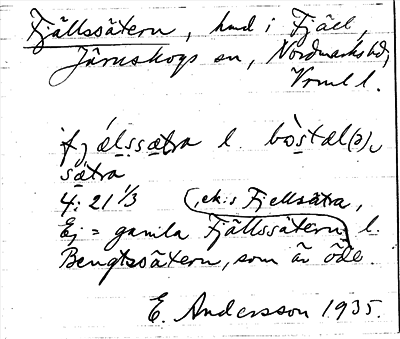 Fjällssätern, hmd i Fjäll,
Järnskogs sn, Nordmarks hd,
Vrml l.
fjälssætra l. bòstal(ə)
sætra
4: 21 1/3 (, ek: s Fjellsätra,
Ej = gamla Fjällssätern l.
Bengtssätern, som är öde.
E. Andersson 1935.